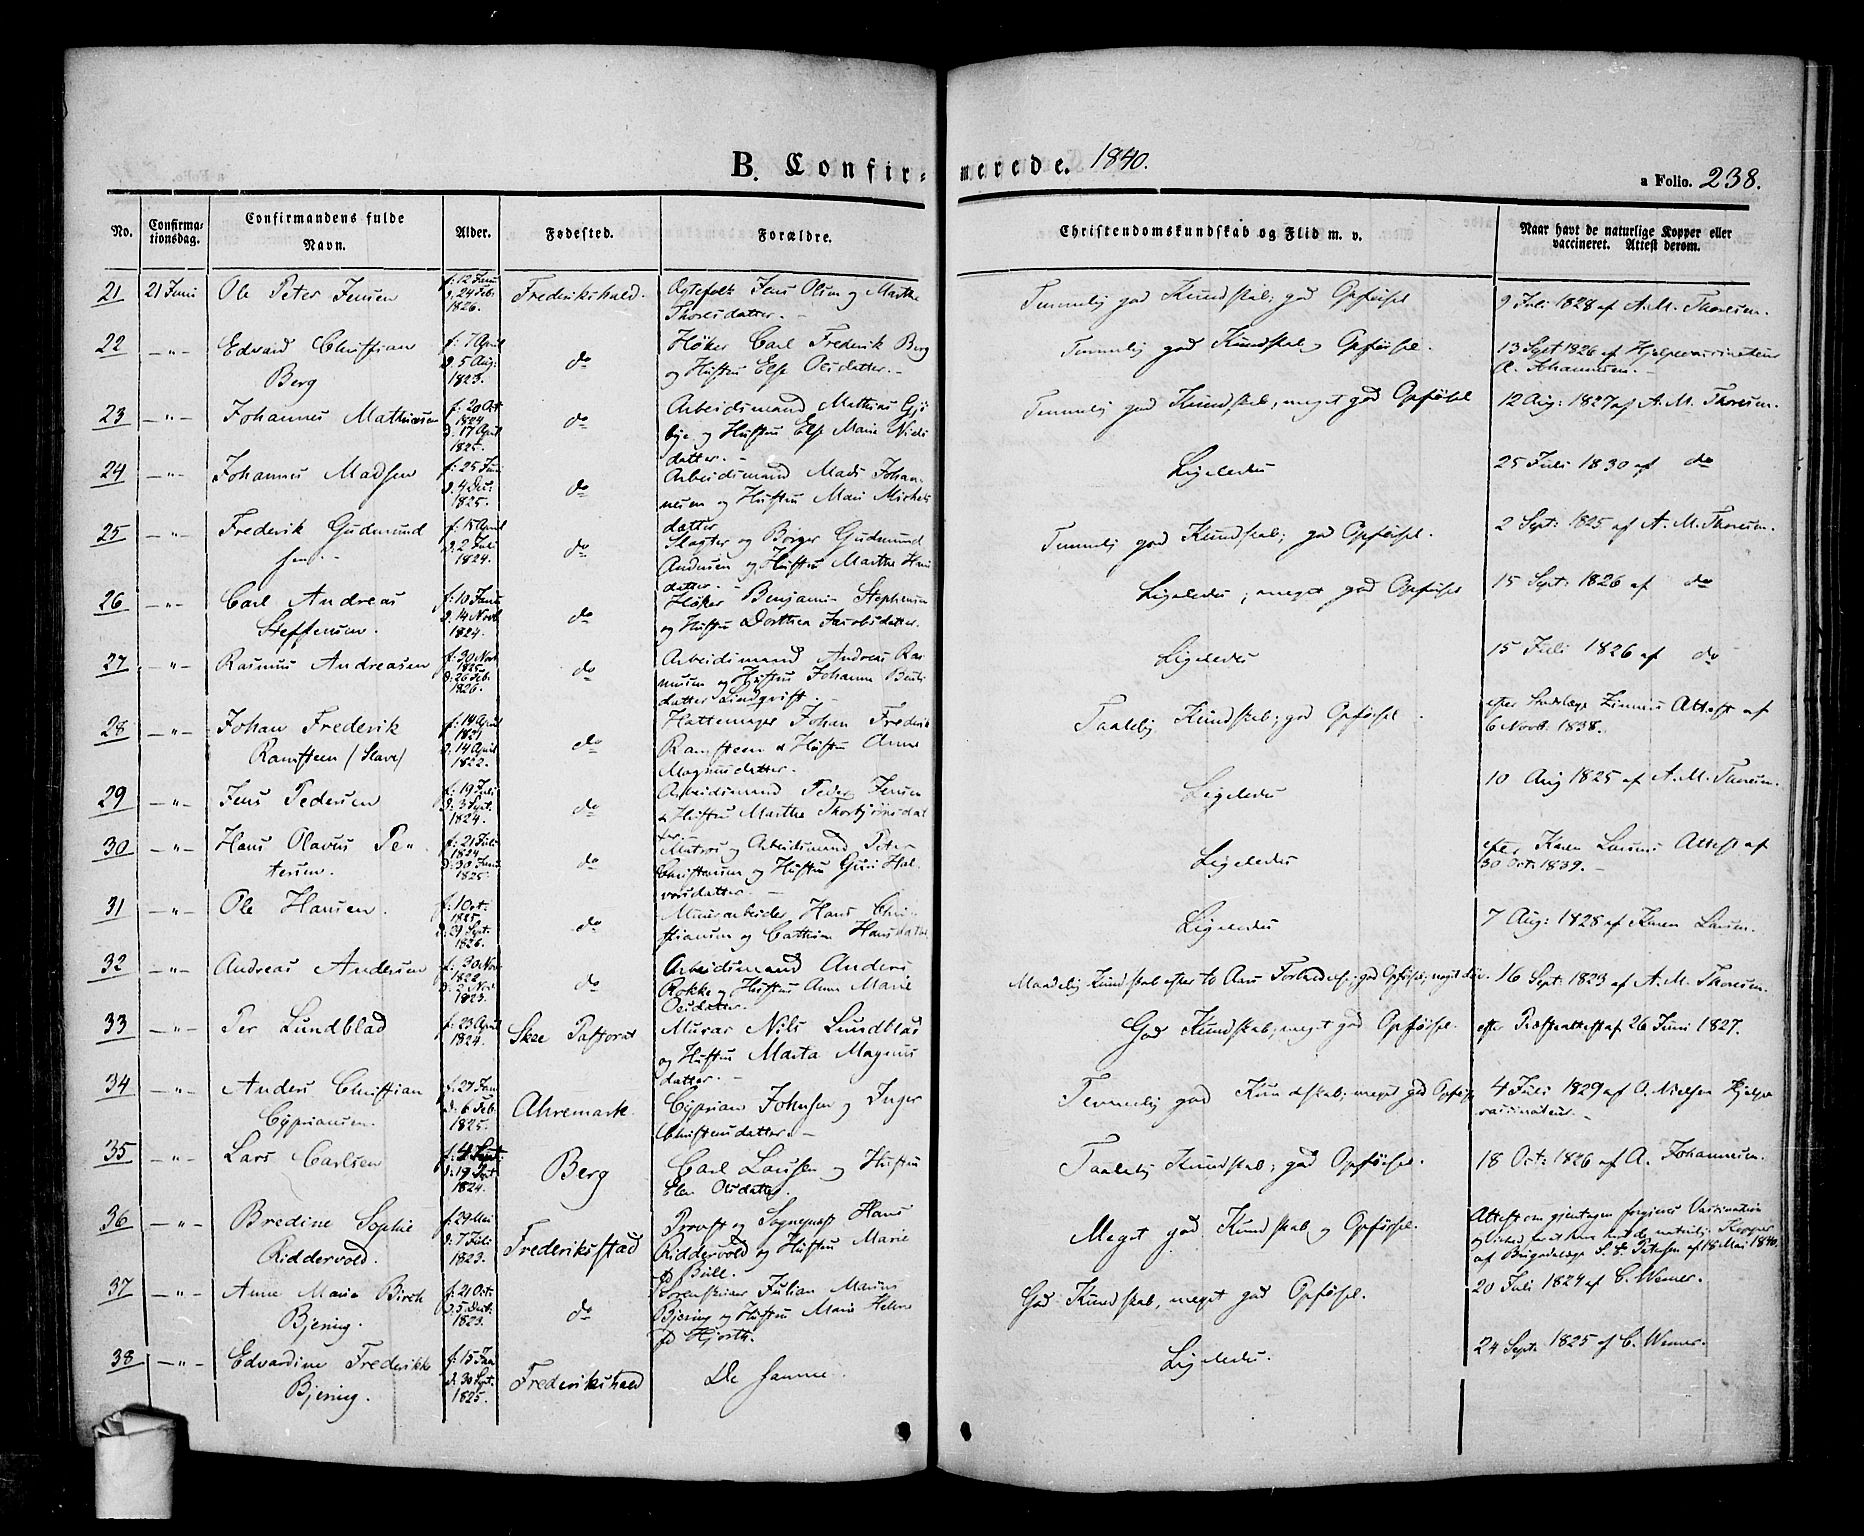 B. Confirmerede. 1840.
a Folio. 238.
No. Confirmationsdag. Confirmandens fulde Navn. Alder. Fødested. Forældre. Christendomskundskab og Flid m. v. Naar havt de naturlige Kopper eller vaccineret. Attest derom.
21 21 Juni Ole Peter Jensen f: 12 Juni d. 24 Feb. 1826. Frederikshald. Ægtefolk Jens Olsen og Marthe Thoresdatter. Temmelig god Kundskab; god Opførsel 9 Juli 1828 af A. M. Thoresen.
22 —"— Edvard Christian Berg f: 7 April d. 5 Aug: 1823. do Høker Carl Frederik Berg og Hustru Else Olesdatter.— Temmelig god Kundskab og Opførsel. 13 Sept 1826 af Hjelpevaccinateur A. Johannesen.—
23 —"— Johannes Mathiesen f: 20 Oct 1824 d. 17 April 1825. do Arbeidsmand Mathias og Hustru Else Marie Niels datter.— Temmelig god Kundskab, meget god Opførsel 12 Aug: 1827 af A. M. Thoresen.
24 —"— Johannes Madsen f: 25 d. 4 1825. do Arbeidsmand Mads Johannesen og Hustru Mari Michels datter Ligeledes 25 Juli 1830 af do
25 —"— Frederik Gudmundsen.— f: 15 April d. 2 Juli 1824. do Slagter og Borger Gudmund Andersen og Hustru Marthe datter.— Temmelig god Kundskab; god Opførsel. 2 Sept: 1825 af A. M. Thoresen.
26 —"— Carl Andreas Steffensen. f: 10 Juni d. 14 Novb 1824. do Høker Benjamin Stephensen og Hustru Dorthea Jacobsdatter. Ligeledes; meget god Opførsel 15 Sept: 1826 af do
27 —"— Rasmus Andreasen f: 30 Nov 1825 d: 26 Feb. 1826. do Arbeidsmand Andreas Rasmusen og Hustru Johanne datter Lindqvist.— Ligeledes 15 Juli 1826 af do
28 —"— Johan Frederik Ramsteen /Slave/ f: 14 April 1821 d: 14 April 1822. do Hattemager Johan Frederik Ramsteen & Hustru Anne Magnusdatter. Taalelig Kundskab; god Opførsel. efter Attest af 6 Novb. 1838.
29 —"— Jens Pedersen f: 19 Juli d: 3 Sept. 1824. do Arbeidsmand Peder Jensen & Hustru Marthe Thorbjørnsdatter. Ligeledes 10 Aug 1825 af A. M. Thoresen.
30 —"— Hans Olavus Petersen. f: 21 Juli 1824 d: 30 Juni 1825. do Matros og Arbeidsmand Peter Christensen og Hustru Guri Halvorsdatter.— Ligeledes efter Karen Larsens Attest af 30 Oct: 1839.
31 —"— Ole Hansen. f: 1 Oct. 1825 d: 29 Sept. 1826. do Muurarbeider Hans Christiansen og Cathrine Hansdatter Ligeledes 7 Aug: 1828 af Karen Larsen.
32 —"— Andreas Andersen f: 30 Nov 1822 d: 2 Nov 1823. do Arbeidsmand Anders Rokke og Hustru Anne Marie Olesdatter. Maadelig Kundskab efter to Aars god Opførsel; 16 Sept: 1823 af A. M. Thoresen.
33 —"— Per Lundblad f: 23 April 1824. Skee Pastorat Murar Nils Lundblad og Hustru Marta Magnusdatter.— God Kundskab; meget god Opførsel. efter Præsteattest af 26 Juni 1827.
34 —"— Anders Christian Cyprianusen. f: 27 Jan d: 6 Feb. 1825. Ahremark Cyprian Johnsen og Inger Christensdatter.— Temmelig god Kundskab; meget god Opførsel 4 Juli 1829 af A. Nielsen Hjelpevaccinateur.—
35 —"— Lars Carlsen f: 4 Sept: d: 19 Sept 1824. Berg Carl Laursen og Hustru Elen Olesdatter. Taalelig Kundskab; god Opførsel. 18 Oct: 1826 af A. Johannesen.
36 —"— Bredine Sophie Riddervold. f: 29 Mai d: 7 Juli 1823. Frederiksstad Provst og Sognepræst Hans Riddervold og Hustru Marie fd Bull. Meget god Kundskab og Opførsel. Attest om gjentagen forgjeves Vaccination af Brigadelæge Petersen af 18 Mai 1840.
37 —"— Anne Marie Birch Bjering. f: 21 Oct. d: 5 Dect. 1823. do Julian Marius Bjering og Hustru Marie Helene fd Hjorth. God Kundskab, meget god Opførsel. 20 Juli 1824 af C. Werner.
38 —"— Edvardine Frederikke Bjering. f: 15 Jan d: 30 Sept. 1825. Frederikshald De samme. Ligeledes. 24 Sept 1825 af C. Werner.